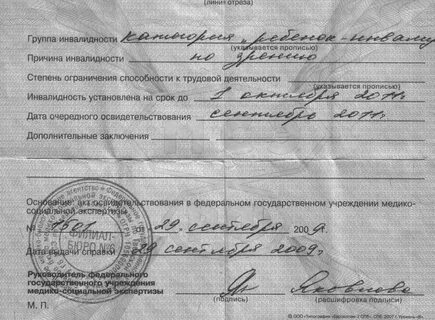 (линия отреза)
Группа инвалидности категория "ребенок-инвалид
(указывается прописью)
Причина инвалидности по зрению
Степень ограничения способности к трудовой деятельности
(указывается прописью)
Инвалидность установлена на срок до 1 октября 2011г
Дата очередного освидетельствования сентябрь 2011г.
Дополнительные заключения
Основание: акт освидетельствования в федеральном государственном учреждении медико-
социальной экспертизы
№ 1501 от 29 сентября 2009г.
Дата выдачи справки 29 сентября 2009г.
Руководитель федерального
государственного учреждения
медико-социальной экспертизы
(подпись) (расшифровка подписи)
М. П.
ФИЛИАЛ-
БЮРО №6